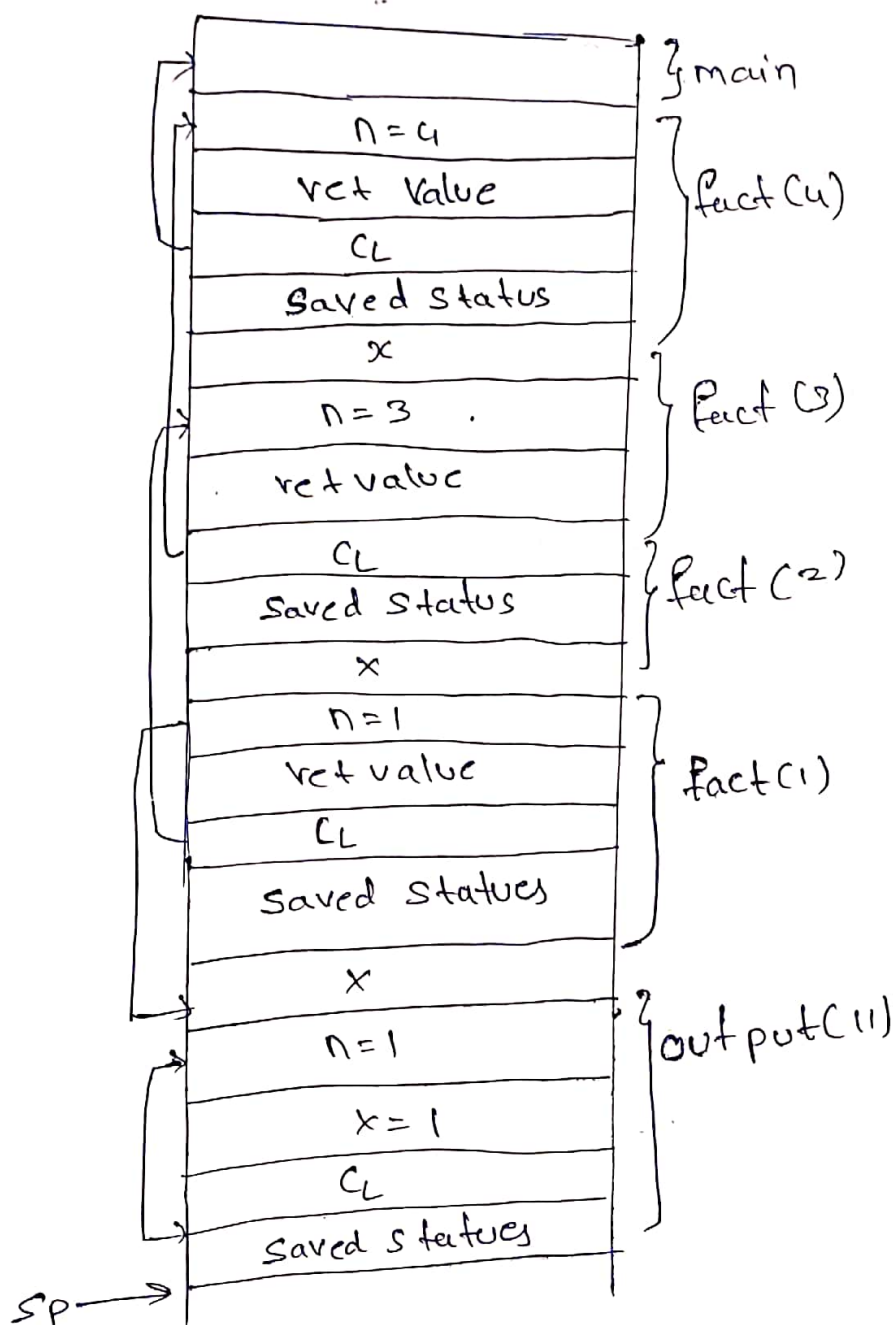 } main
n = 4
ret Value
CL
Saved status
x
fact (4)
n = 3
ret value
fact (3)
CL
Saved status
x
fact (2)
n = 1
ret value
CL
Saved statues
fact (1)
x
n = 1
x = 1
CL
Saved statues
output (11)
SP